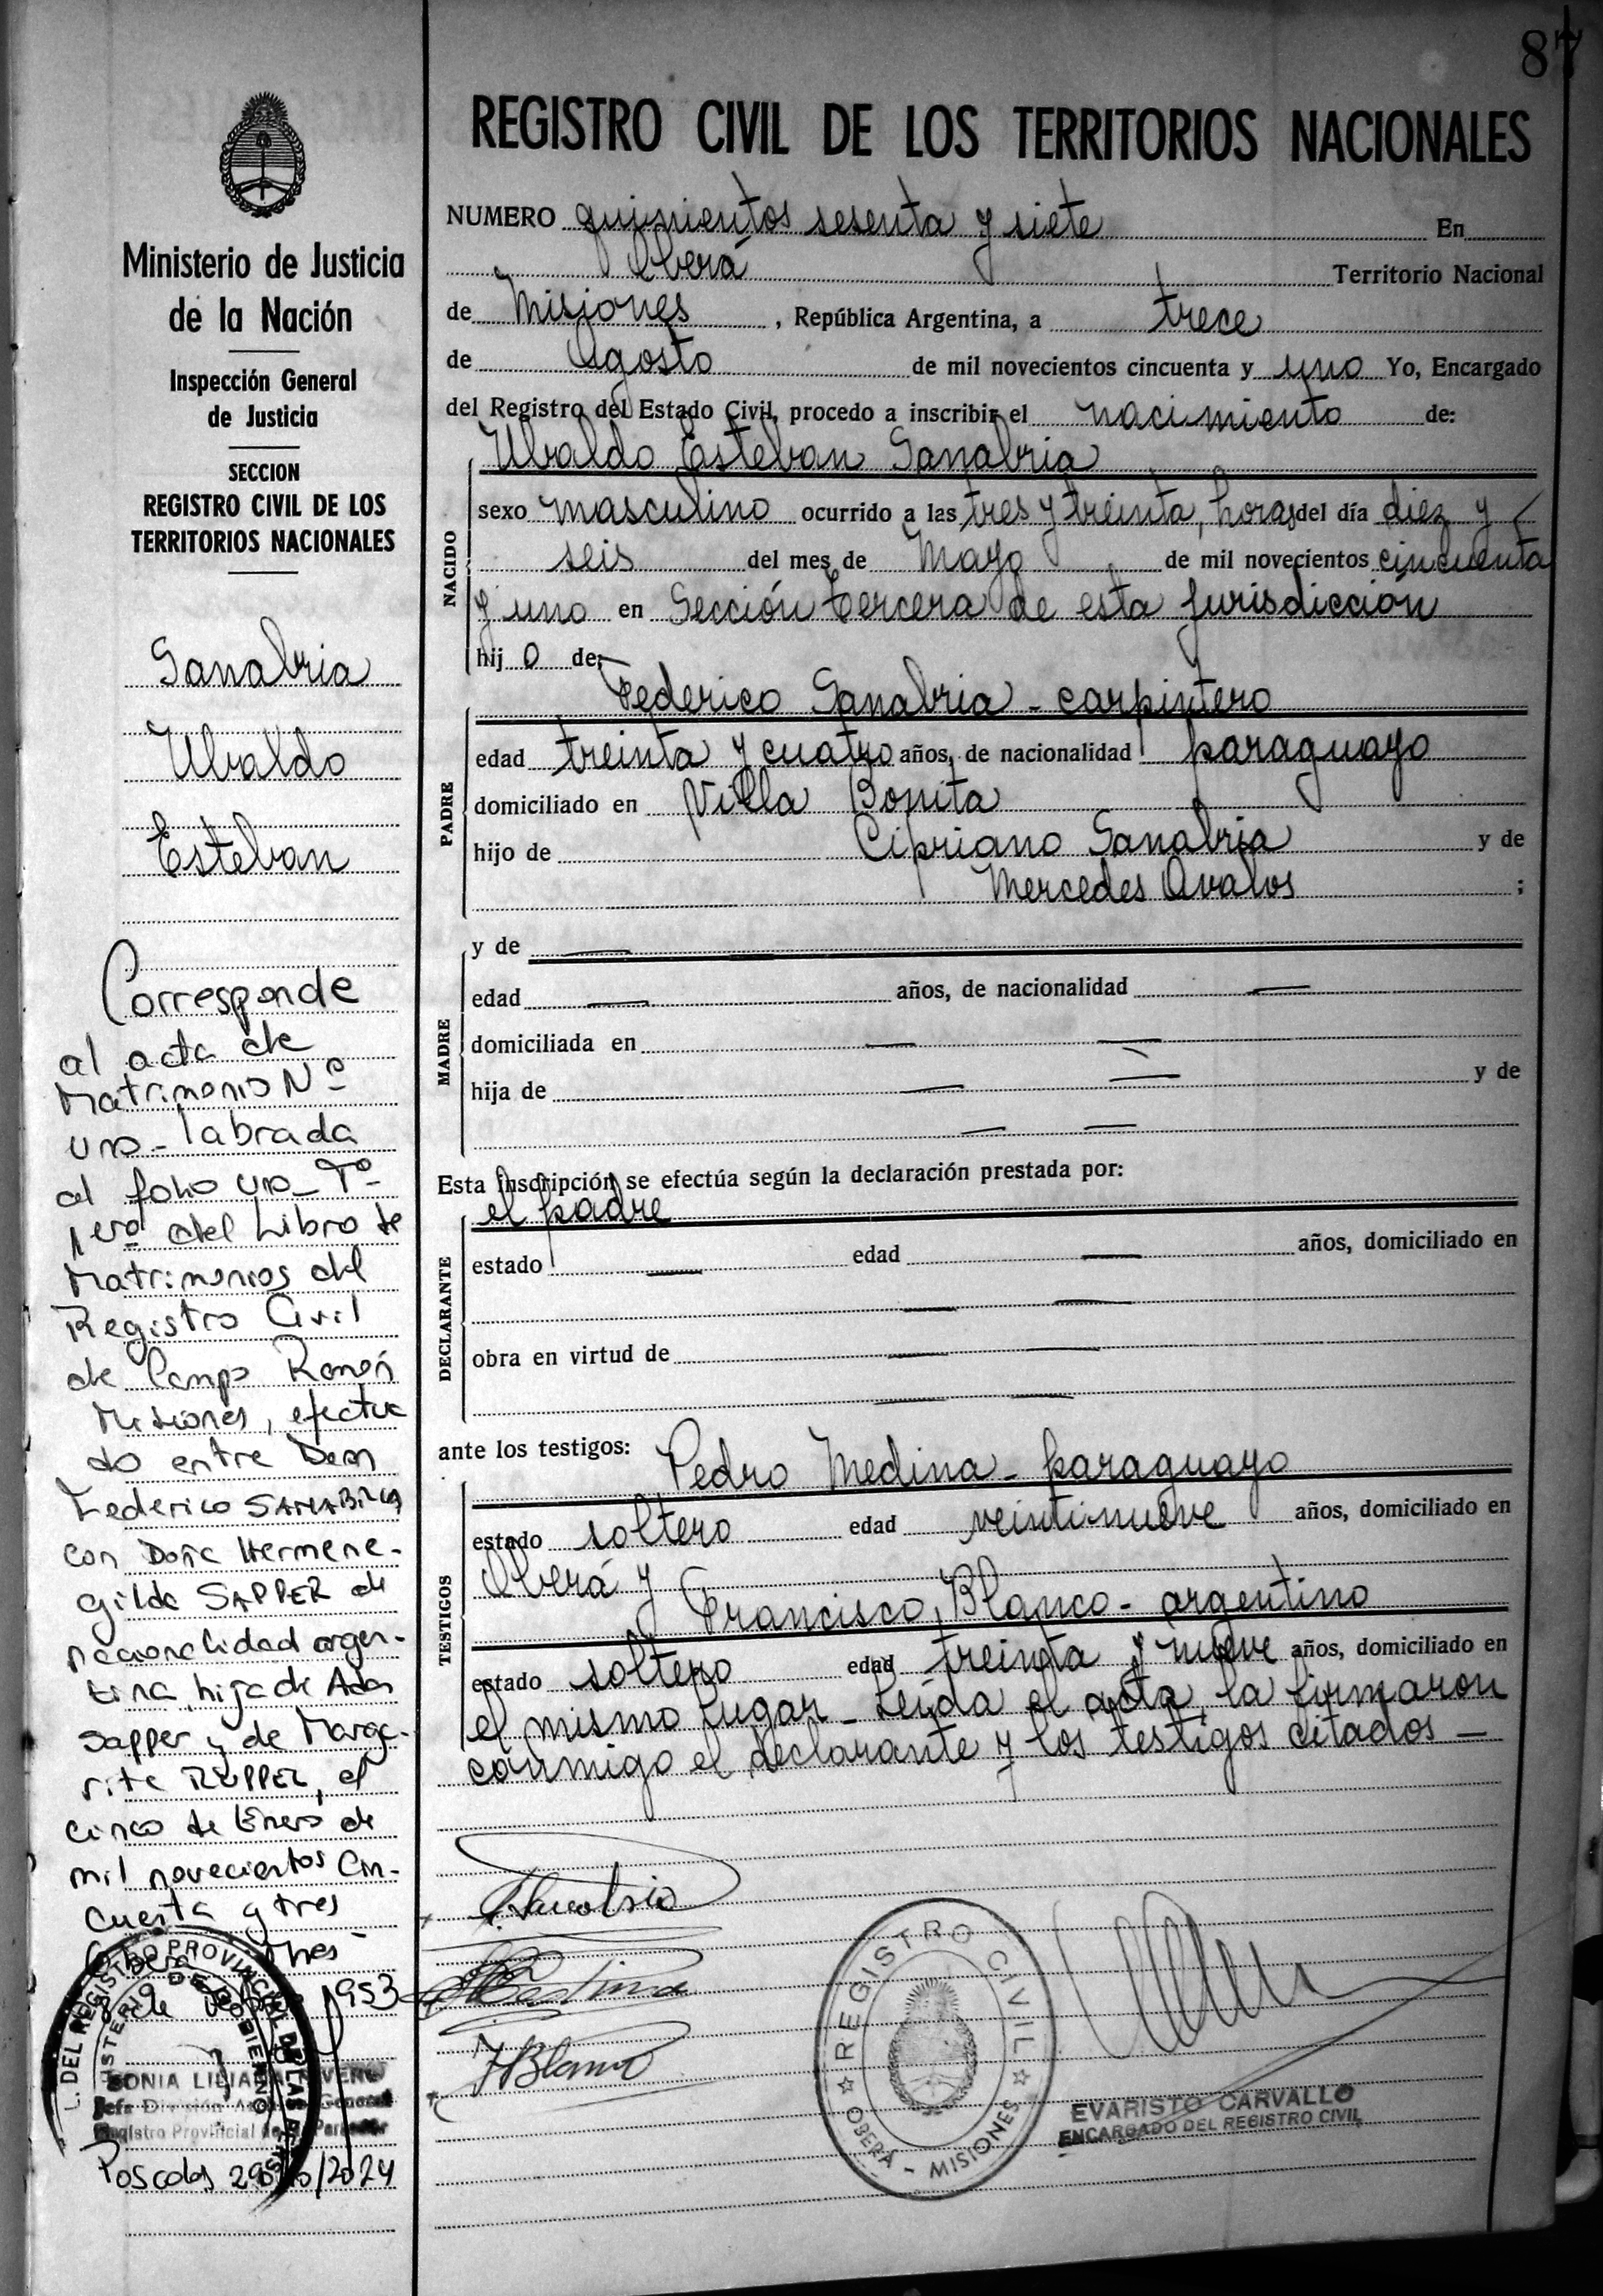 87
REGISTRO CIVIL DE LOS TERRITORIOS NACIONALES
Ministerio de Justicia
de la Nación
Inspección General
de Justicia
SECCION
REGISTRO CIVIL DE LOS
TERRITORIOS NACIONALES
Sanabria
Ubaldo
Esteban
Corresponde
al acta de
Matrimonio Nº
uno - labrada
al folio uno - Tº
1ero del Libro de
Matrimonios del
Registro Civil
de Campo Ramón
Misiones, efectua
do entre Don
Federico SANABRIA
con Doña Hermene-
gilda SAPPER de
nacionalidad argen-
tina, hija de Adan
Sapper y de Marga-
rita RUPPER, el
cinco de Enero de
mil novecientos Cin-
cuenta y tres
Oberá
de 1953
SONIA LILIANA
Registro Provincial de las Personas
Posadas 29/10/2024
NUMERO quinientos sesenta y siete En
Oberá Territorio Nacional
de Misiones, República Argentina, a trece
de Agosto de mil novecientos cincuenta y uno Yo, Encargado
del Registro del Estado Civil, procedo a inscribir el nacimiento de:
Ubaldo Esteban Sanabria
NACIDO
sexo masculino ocurrido a las tres y treinta, horas del día diez y
seis del mes de Mayo de mil novecientos cincuenta
y uno en Sección tercera de esta jurisdicción
hijo de:
Federico Sanabria - carpintero
PADRE
edad treinta y cuatro años, de nacionalidad paraguayo
domiciliado en Villa Bonita
hijo de Cipriano Sanabria y de
Mercedes Avalos ;
MADRE
y de —
edad — años, de nacionalidad —
domiciliada en — —
hija de — — y de
— —
Esta inscripción se efectúa según la declaración prestada por:
el padre
DECLARANTE
estado — edad — años, domiciliado en
— —
obra en virtud de — —
— —
ante los testigos: Pedro Medina - paraguayo
TESTIGOS
estado soltero edad veintinueve años, domiciliado en
Oberá y
Francisco Blanco - argentino
estado soltero edad treinta y nueve años, domiciliado en
el mismo lugar - Leída el acta, la firmaron
conmigo el declarante y los testigos citados —
FBlanco
REGISTRO CIVIL
OBERÁ - MISIONES
EVARISTO CARVALLO
ENCARGADO DEL REGISTRO CIVIL